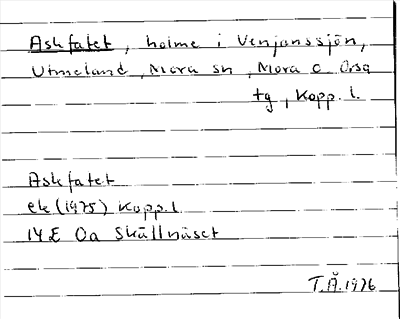 Askfatet, holme i Venjanssjön,
Utmeland, Mora sn, Mora o. Orsa
tg, Kopp. l.
Askfatet
ek (1975) Kopp. l
14E 0a Skällnäset
T.Å. 1976